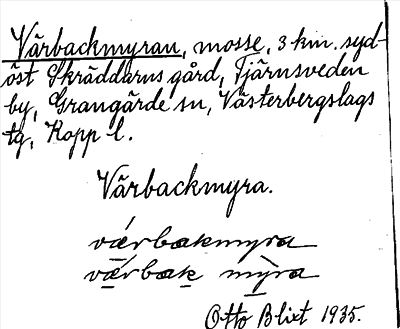 Vårbackmyran, mosse, 3 km. syd-
öst Skräddarns gård, Fjärnsveden
by, Grangärde sn, Västerbergslags
tg, Kopp l.
Vårbackmyra.
várbakmyra
vårbak mỳra
Otto Blixt 1935.